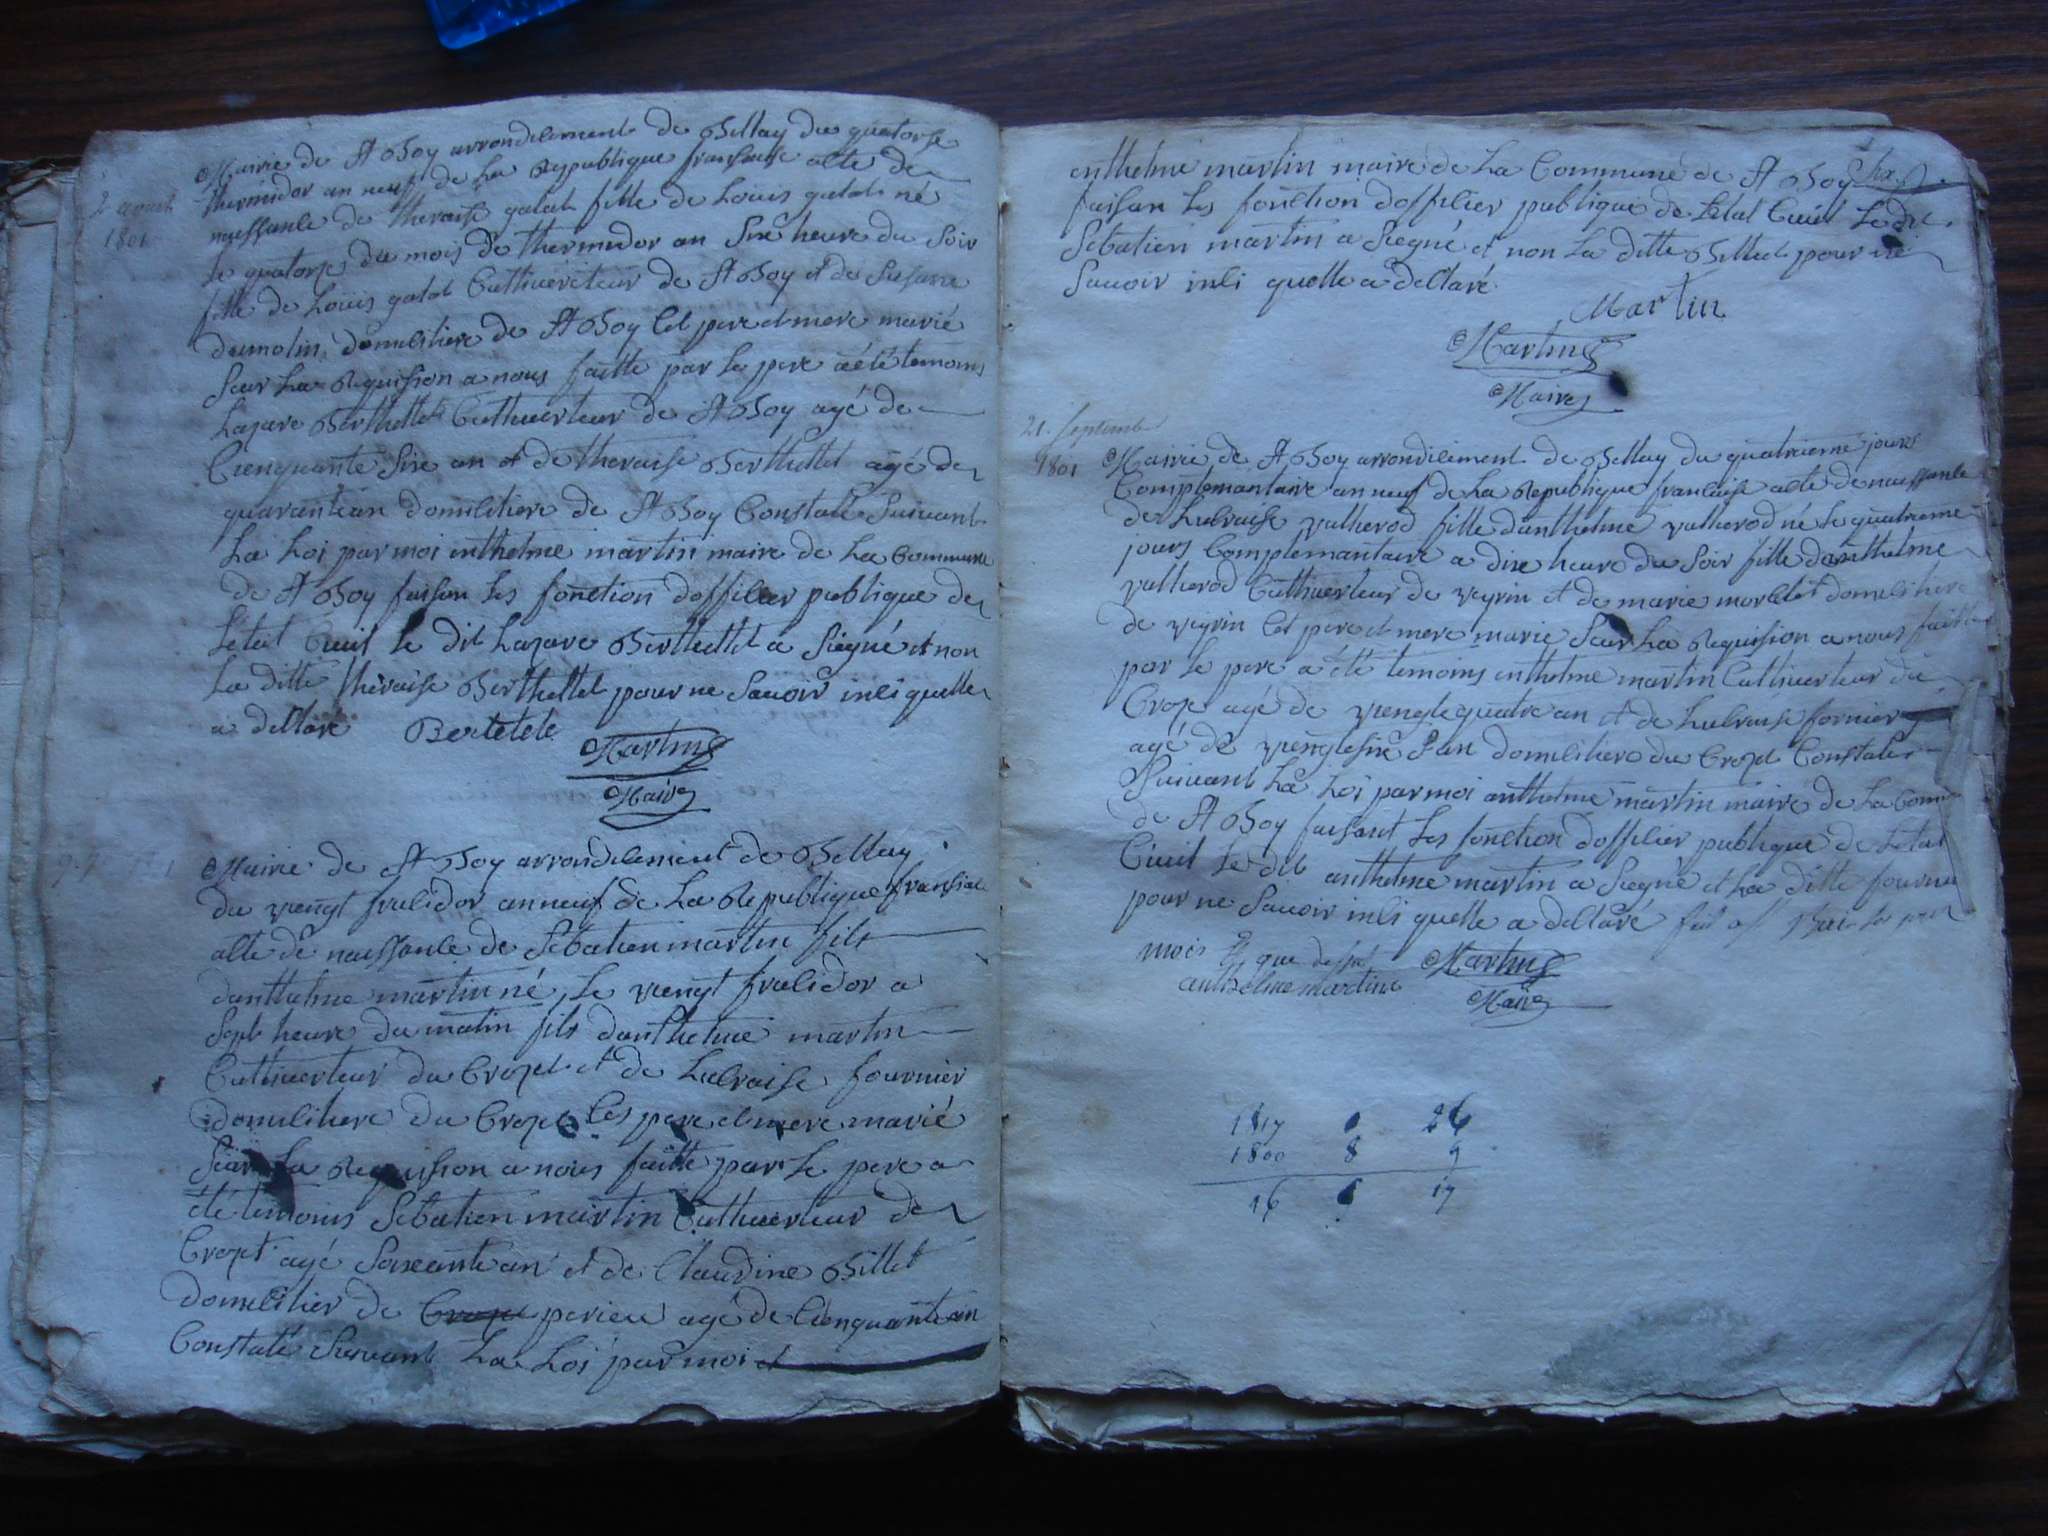 2 aout
1801
Mairie de St Boy arrondilement de Bellay du quatorse
thermidor an neuf de La Republique fransaise alte de
naissanle de theraise galat fille de Loüis galat né
le quatorse du mois de thermidor an Sixe heure du Soir
fille de Loüis galat Cultiverteur de St Boy et de Susane
dumolin domilitiere de St Boy Les pere et mere marié
Seur La Requision a nous faitte par le pere a été temoins
Lazare Berthellet Cultiuerteur de St Boy agé de
Cienquante Sixe an et de theraise Berthellet agé de
quarantean domilitiere de St Boy Constaté Suivant
La Loi par moi enthelme martin maire de La Commune
de St Boy faisan Les fonction doffilier publique de
Letat Ciuil Le dit Lazare Berthellet a Siegné et non
La ditte theraise Berthellet pour ne Sauoir inli quelle
a dellaré Bertetete
Martin
Maire
Mairie de St Boy arrondilement de Bellay
du viengt frulidor an neuf de La Republique fransaise
alte de naissanle de Sebatien martin fils
danthelme martin né le viengt frulidor a
Sept heure du matin fils danthelme martin
Cultiuerteur du Crozet et de Lulraise fournier
domilitiere du Crozet Les pere et mere marié
Seur La Requision a nous faitte par Le pere a
été temoins Sebatien martin Cultiuerteur de
Crozet agé Soixante an et de Claudine Billet
domilitier de Crozet perieu agé de Cienquante an
Constaté Suivant La Loi par moi et
enthelme martin maire de La Commune de St Boy
faisan Les fonction doffilier publique de Letat Ciuil Le dit
Sebatien martin a Siegné et non La ditte Billet pour ne
Sauoir inli quelle a dellaré
Martin
Martin
Maire
21. septembre
1801
Mairie de St Boy arrondilement de Bellay du quatrieme jours
Complemantaire an neuf de La Republique francaise alte de naissanle
de Lulraise vallerod fille danthelme vallerod né Le quatrieme
jours Complemantaire a dixe heure du Soir fille danthelme
vallerod Cultiuerteur de veyrin et de marie morllet domilitiere
de veyrin Les pere et mere marie Seur La Requision a nous faitte
par Le pere a été temoins enthelme martin Cultiuerteur du
Crozet agé de viengtequatre an et de Lulraise fornier
agé de viengtesixe an domilitiere du Crozet Constaté
Suivant La Loi par moi anthelme martin maire de La Comm
de St Boy faisant Les fonction doffilier publique de Letat
Ciuil Le dit anthelme martin a Siegné et La ditte fournier
pour ne Sauoir inli quelle a dellaré fait
mois que dessus
anthelme martin
Martin
Maire
1817 26
1800 8 9
16 17